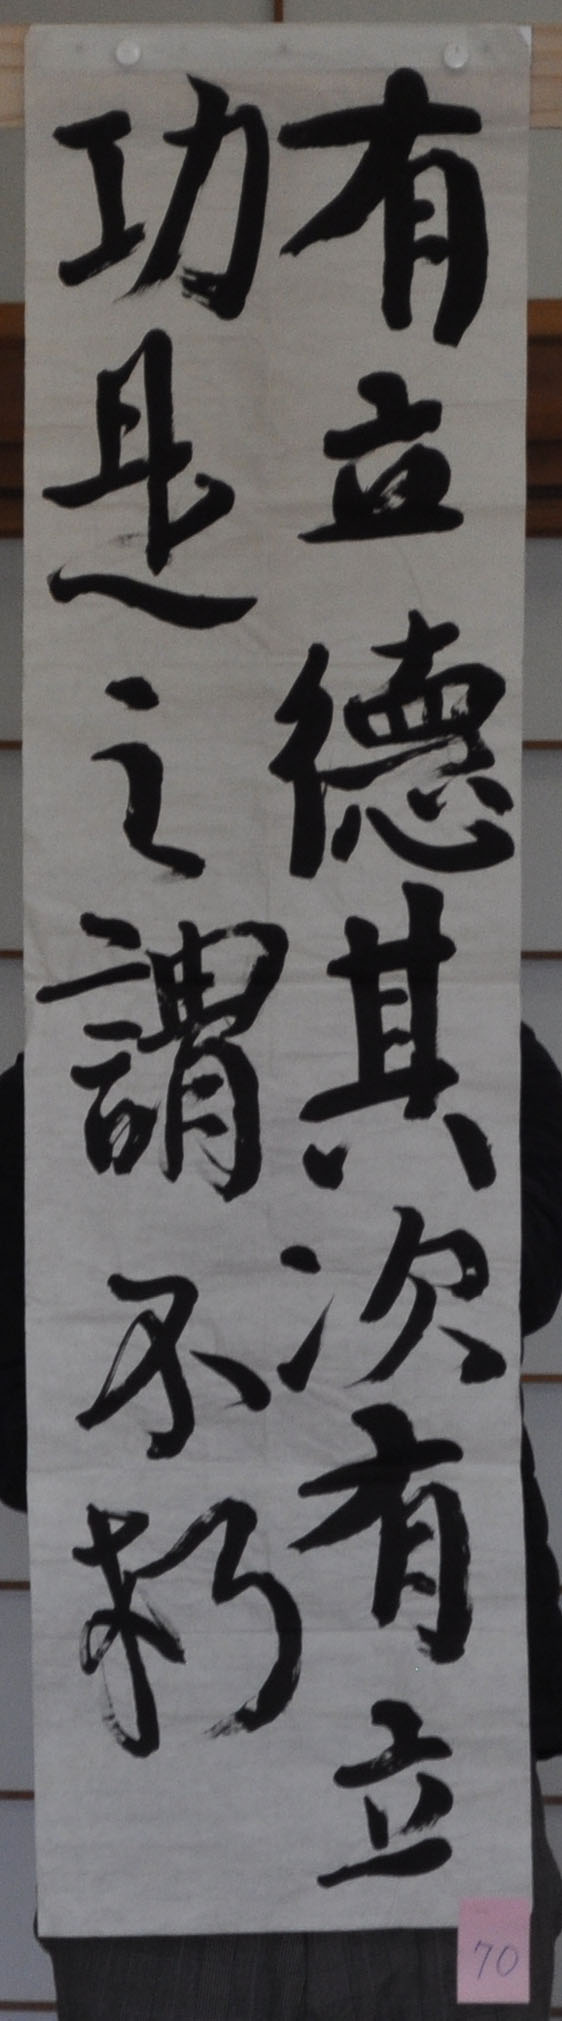 有立德其次有立
功是之謂不朽
70